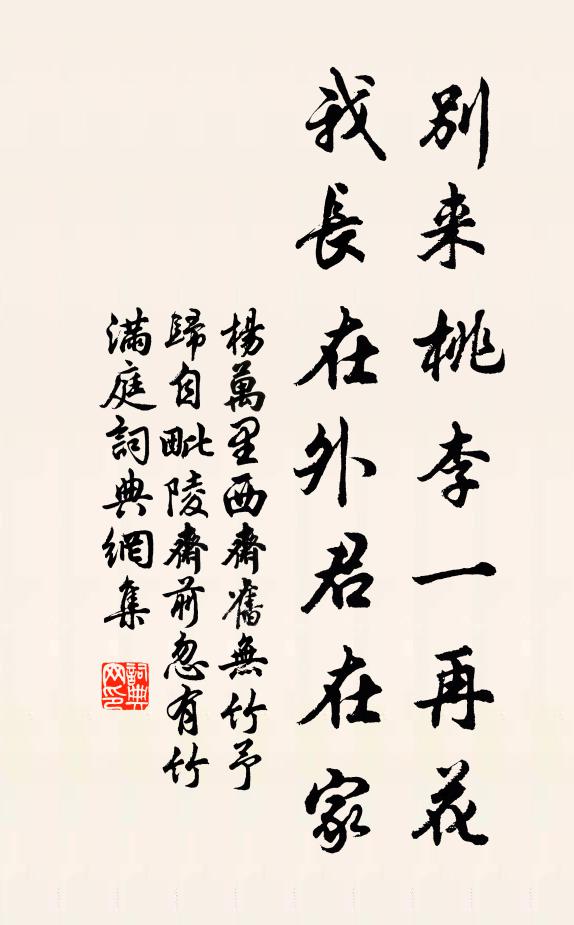 別来桃李一再花
我長在外君在家
楊萬里西齋舊無竹予
歸自毗陵齋前忽有竹
滿庭詞典網集
詞典
网印